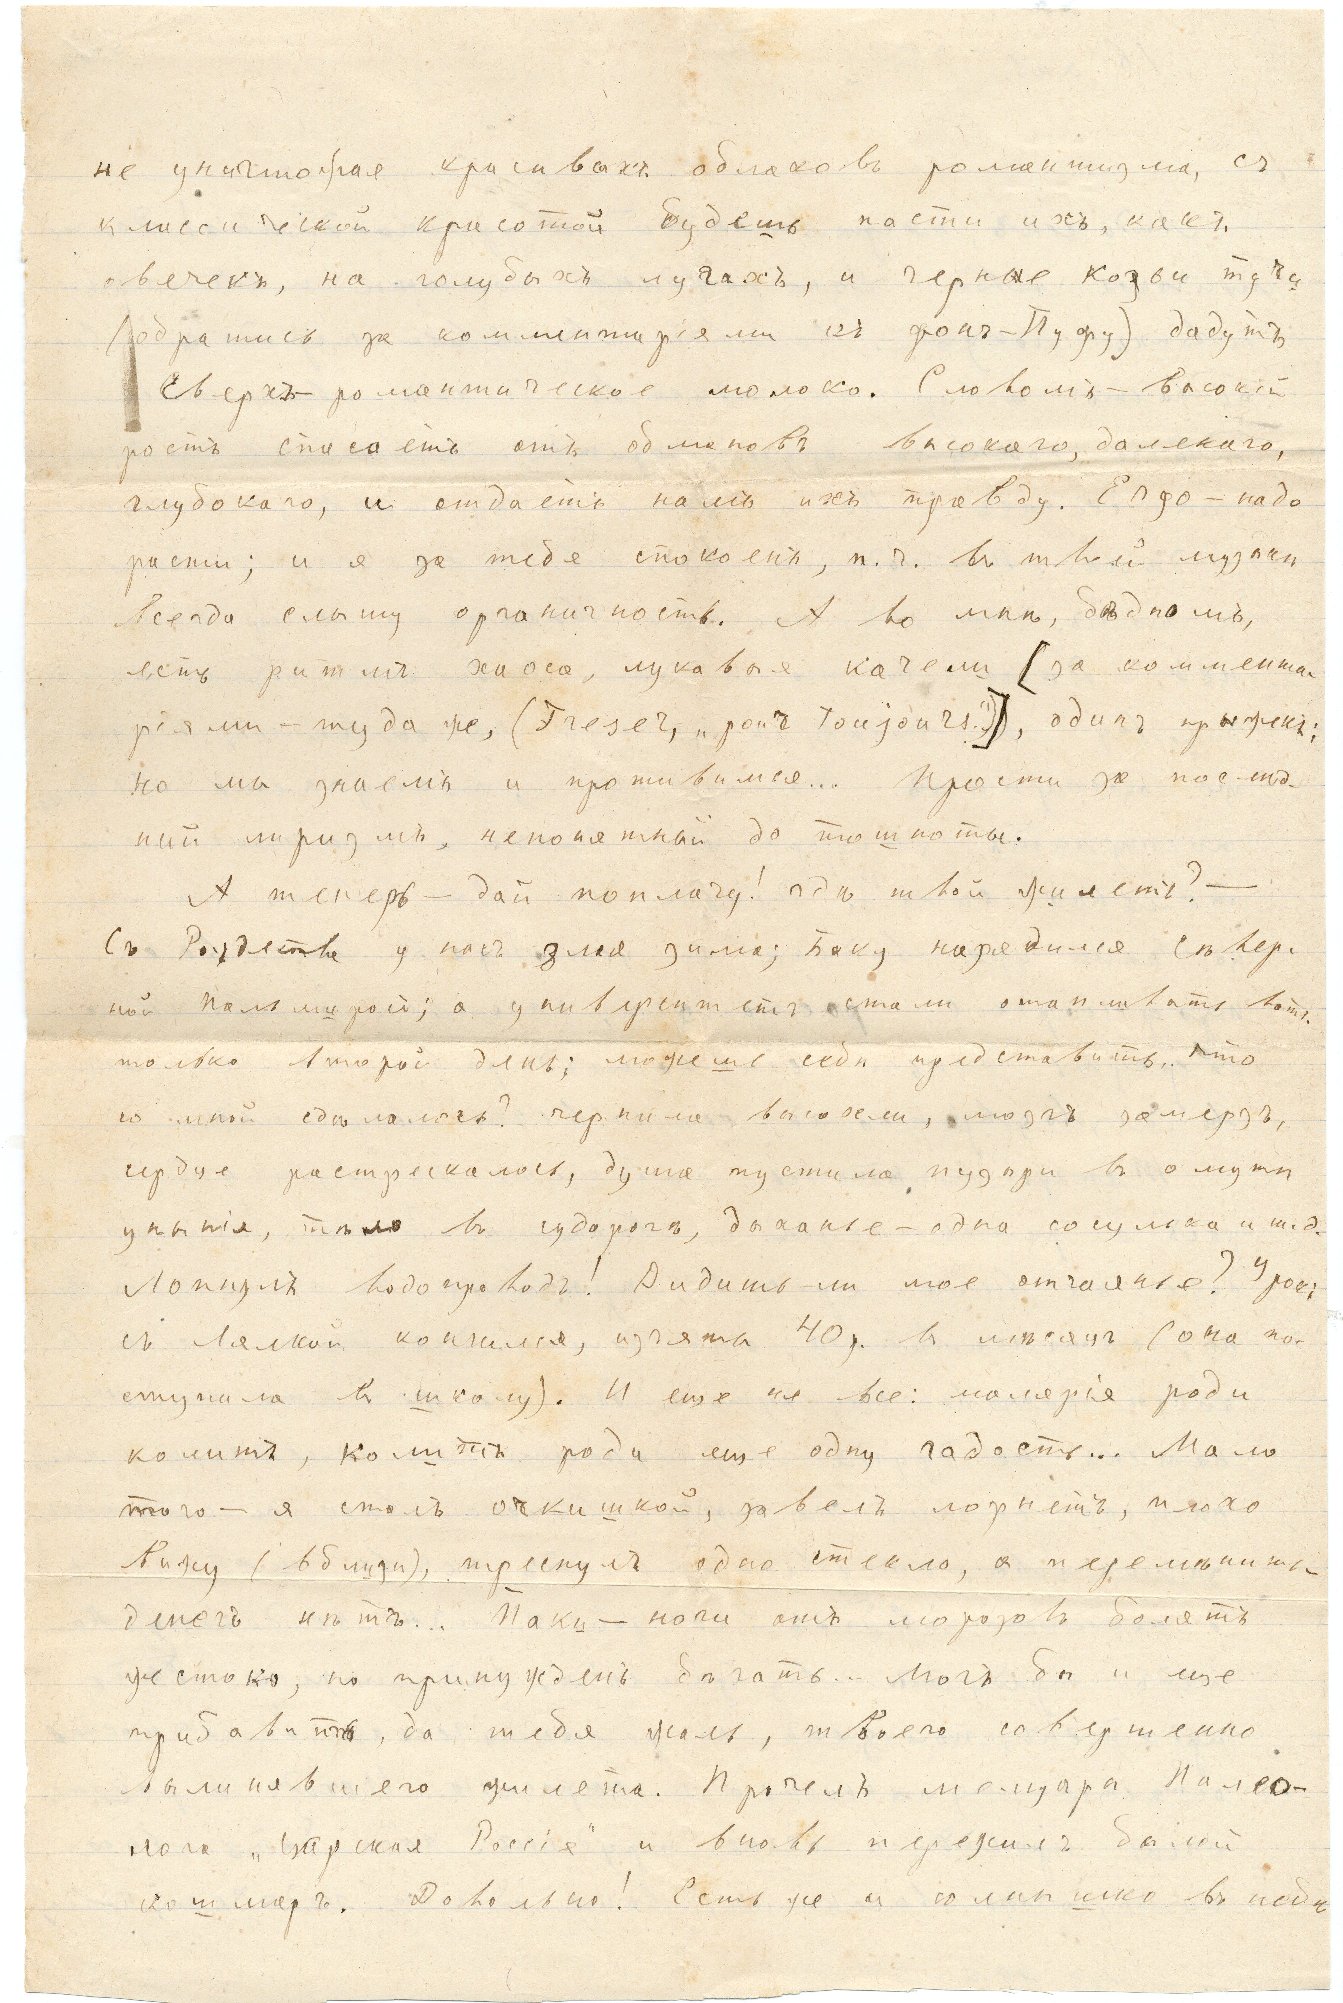 не уничтожая красивыхъ облаковъ романтизма, съ
классической красотой будешь пасти ихъ, какъ
овечекъ, на голубыхъ лугахъ, и черные козьи тучи
(обратись за комментаріями къ фонъ-Пуфу) дадутъ
сверхъ-романтическое молоко. Словомъ – высокій
ростъ спасаетъ отъ обмановъ высокаго, далекаго,
глубокаго, и отдаетъ намъ ихъ правду. Ergo – надо
расти; и я за тебя спокоенъ, п.ч. въ твоей музыкѣ
всегда слышу органичность. А во мнѣ, бѣдномъ,
есть ритмъ хаоса, лукавыя качели [за коммента-
ріями – туда же, ( "pour toujours")], одинъ прыжекъ;
но мы знаемъ и противимся... Прости за послѣд-
ній лиризмъ, непонятный до тошноты.
А теперь – дай поплачу! гдѣ твой жилетъ? –
Съ Рождества у насъ злая зима; Баку нарядился Сѣвер-
ной Пальмирой; а университетъ стали отапливать вотъ
только второй день; можешь себѣ представить, что
со мной сдѣлалось? чернила высохли, мозгъ замерзъ,
сердце растрескалось, душа пустила пузыри въ омутѣ
унынія, тѣло въ судорогѣ, дыханье – одна сосулька и т.д.
Лопнулъ водопроводъ! Видишь-ли мое отчаянье? Урокъ
съ Лялкой кончился, изъяты 40 р. въ мѣсяцъ (она по-
ступила въ школу). И еще не все: малярія ради
колитъ, колитъ ради еще одну гадость... Мало
того – я сталъ очкишкой, завелъ лорнетъ, плохо
вижу (вблизи), треснулъ одно стекло, а перемѣнить
денегъ нѣтъ... Паки – ноги отъ морозовъ болятъ
жестоко, но принужденъ бѣгать. Могъ бы и еще
прибавить, да тебя жаль, твоего совершенно
вылинявшего жилета. Прочелъ мемуары Палео-
лога „Царская Россія" и вновь пережилъ былой
кошмаръ. Довольно! Есть же и солнышко въ небѣ